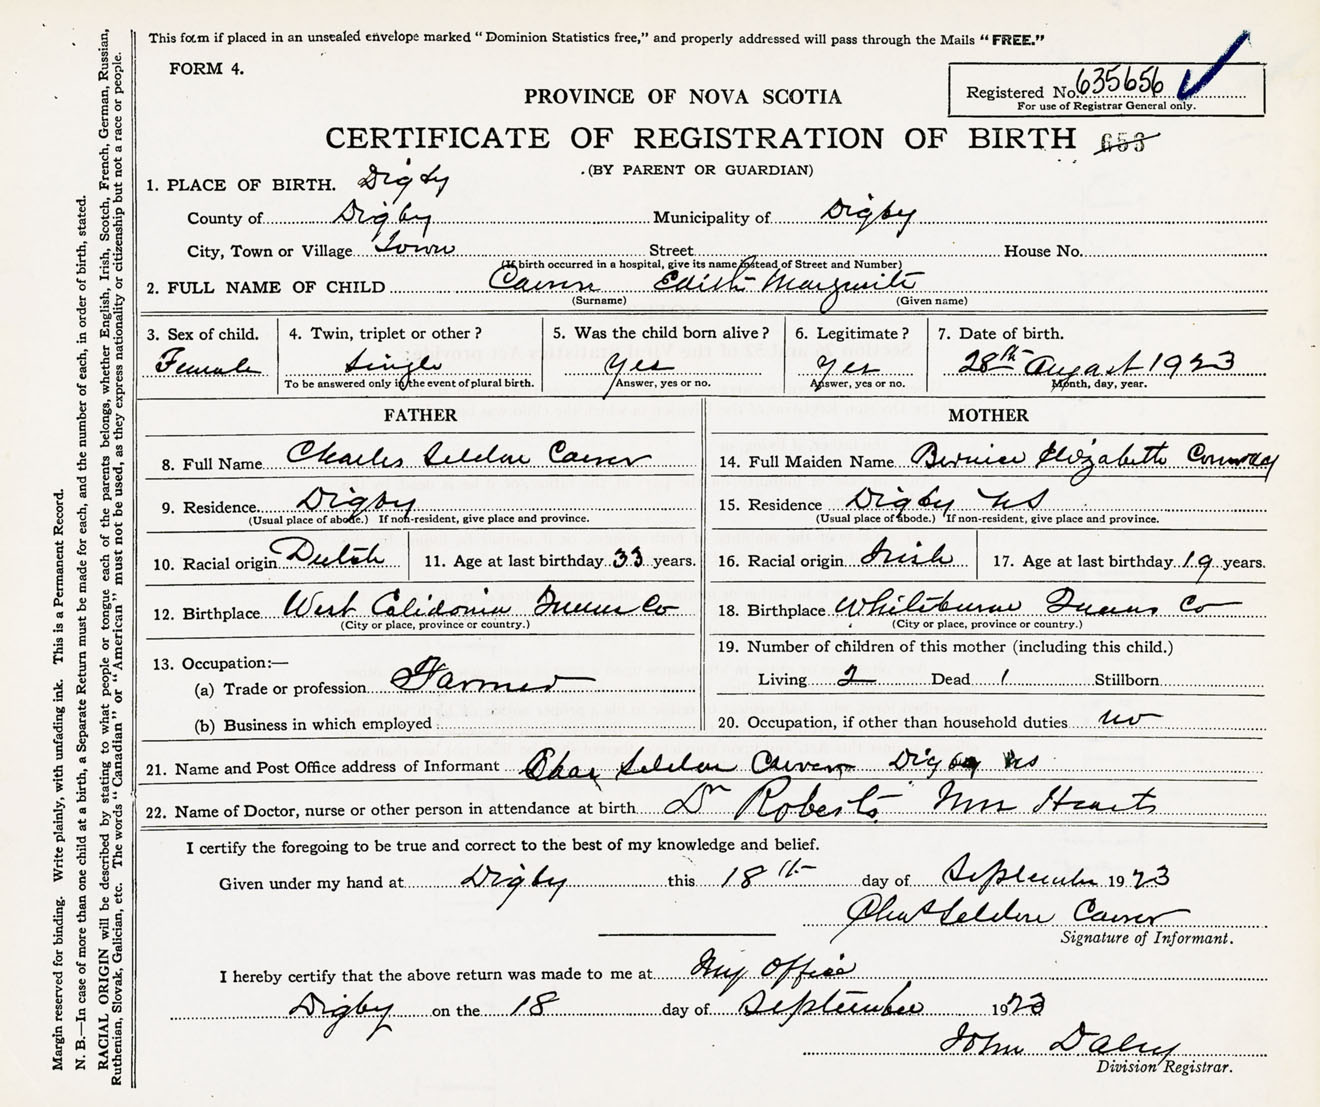 This form if placed in an unsealed envelope marked "Dominion Statistics free," and properly addressed will pass through the Mails "FREE."
FORM 4.
Registered No. 635656
For use of Registrar General only.
PROVINCE OF NOVA SCOTIA
CERTIFICATE OF REGISTRATION OF BIRTH 653
(BY PARENT OR GUARDIAN)
1. PLACE OF BIRTH. Digby
County of Digby Municipality of Digby
City, Town or Village Town Street House No.
(If birth occurred in a hospital, give its name instead of Street and Number)
2. FULL NAME OF CHILD Edith Marguerite
(Surname) (Given name)
3. Sex of child. 4. Twin, triplet or other? 5. Was the child born alive? 6. Legitimate? 7. Date of birth.
Female Single Yes Yes 28th August 1923
To be answered only in the event of plural birth. Answer, yes or no. Answer, yes or no. Month, day, year.
FATHER MOTHER
8. Full Name Charles Seldon 14. Full Maiden Name Bernice Elizabeth
9. Residence Digby 15. Residence Digby NS
(Usual place of abode.) If non-resident, give place and province. (Usual place of abode.) If non-resident, give place and province.
10. Racial origin Dutch 11. Age at last birthday 33 years. 16. Racial origin Irish 17. Age at last birthday 19 years.
12. Birthplace West Calidonia Queens Co 18. Birthplace Whiteburne Queens Co
(City or place, province or country.) (City or place, province or country.)
13. Occupation:— 19. Number of children of this mother (including this child.)
(a) Trade or profession Farmer Living 2 Dead 1 Stillborn
(b) Business in which employed 20. Occupation, if other than household duties no
21. Name and Post Office address of Informant Chas Seldon Digby NS
22. Name of Doctor, nurse or other person in attendance at birth Dr Roberts
I certify the foregoing to be true and correct to the best of my knowledge and belief.
Given under my hand at Digby this 18th day of September 1923
Chas Seldon
Signature of Informant.
I hereby certify that the above return was made to me at My Office
Digby on the 18 day of September 1923
John Daley
Division Registrar.
Margin reserved for binding. Write plainly, with unfading ink. This is a Permanent Record.
N. B.—In case of more than one child at a birth, a Separate Return must be made for each, and the number of each, in order of birth, stated.
RACIAL ORIGIN will be described by stating to what people or tongue each of the parents belongs, whether English, Irish, Scotch, French, German, Russian,
Ruthenian, Slovak, Galician, etc. The words "Canadian" or "American" must not be used, as they express nationality or citizenship but not a race or people.